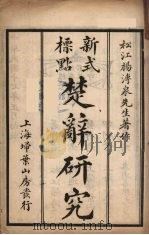 松江楊溥泉先生著作
新式
標點
楚辭研究
上海埽葉山房發行